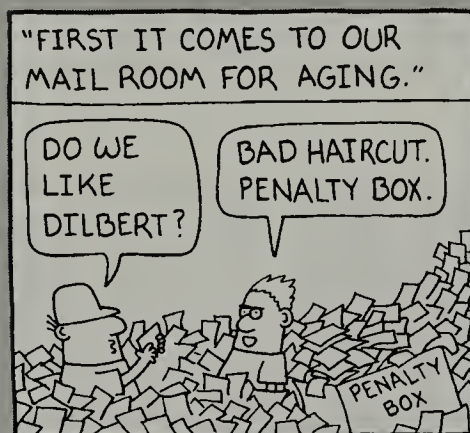 "FIRST IT COMES TO OUR
MAIL ROOM FOR AGING."
DO WE
LIKE
DILBERT?
BAD HAIRCUT.
PENALTY BOX.
PENALTY
BOX